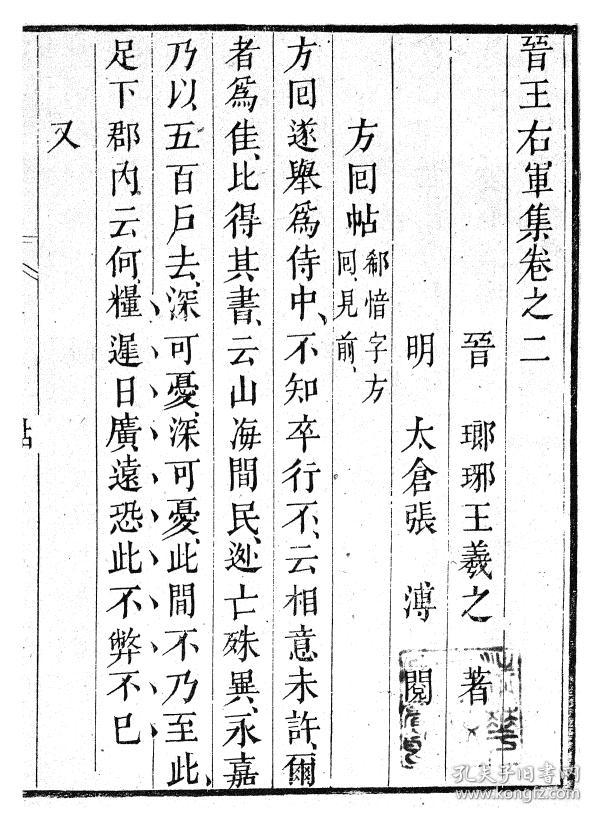 晉王右軍集卷之二
晉 瑯琊王羲之 著
明 太倉張 溥 閱
方回帖 郗愔字方回、見前、
方回遂舉爲侍中、不知卒行不、云相意未許、爾
者爲佳、比得其書、云山海間民、迯亡殊異、永嘉
乃以、五百戶去、深可憂、深可憂、此間不乃至此、
足下郡内、云何糧遲日廣、遠恐此不弊不已
又
帖
孔夫子旧书网
www.kongfz.com